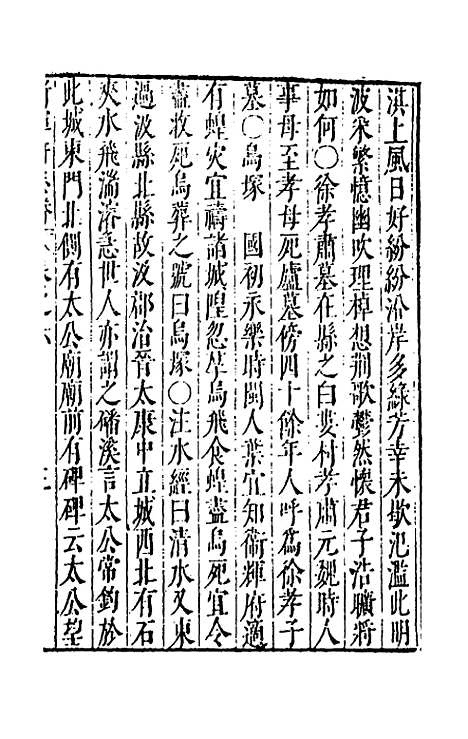 淇上風日好紛紛沿岸多綠芳幸未歇汜濫此明
波采繁憶幽吹理棹想荆歌鬱然懷君子浩曠將
如何〇徐孝肅墓在縣之白婁村孝肅元魏時人
事母至孝母死廬墓傍四十餘年人呼爲徐孝子
墓〇烏塚 國初永樂時閩人葉宜知衞輝府適
有蝗灾宜禱諸城隍忽羣烏飛食蝗盡烏死宜令
盡收死烏葬之號曰烏塚〇注水經曰清水又東
過汲縣北縣故汲郡治晉太康中立城西北有石
夾水飛湍濬急世人亦謂之磻溪言太公常釣於
此城東門北側有太公廟廟前有碑碑云太公望